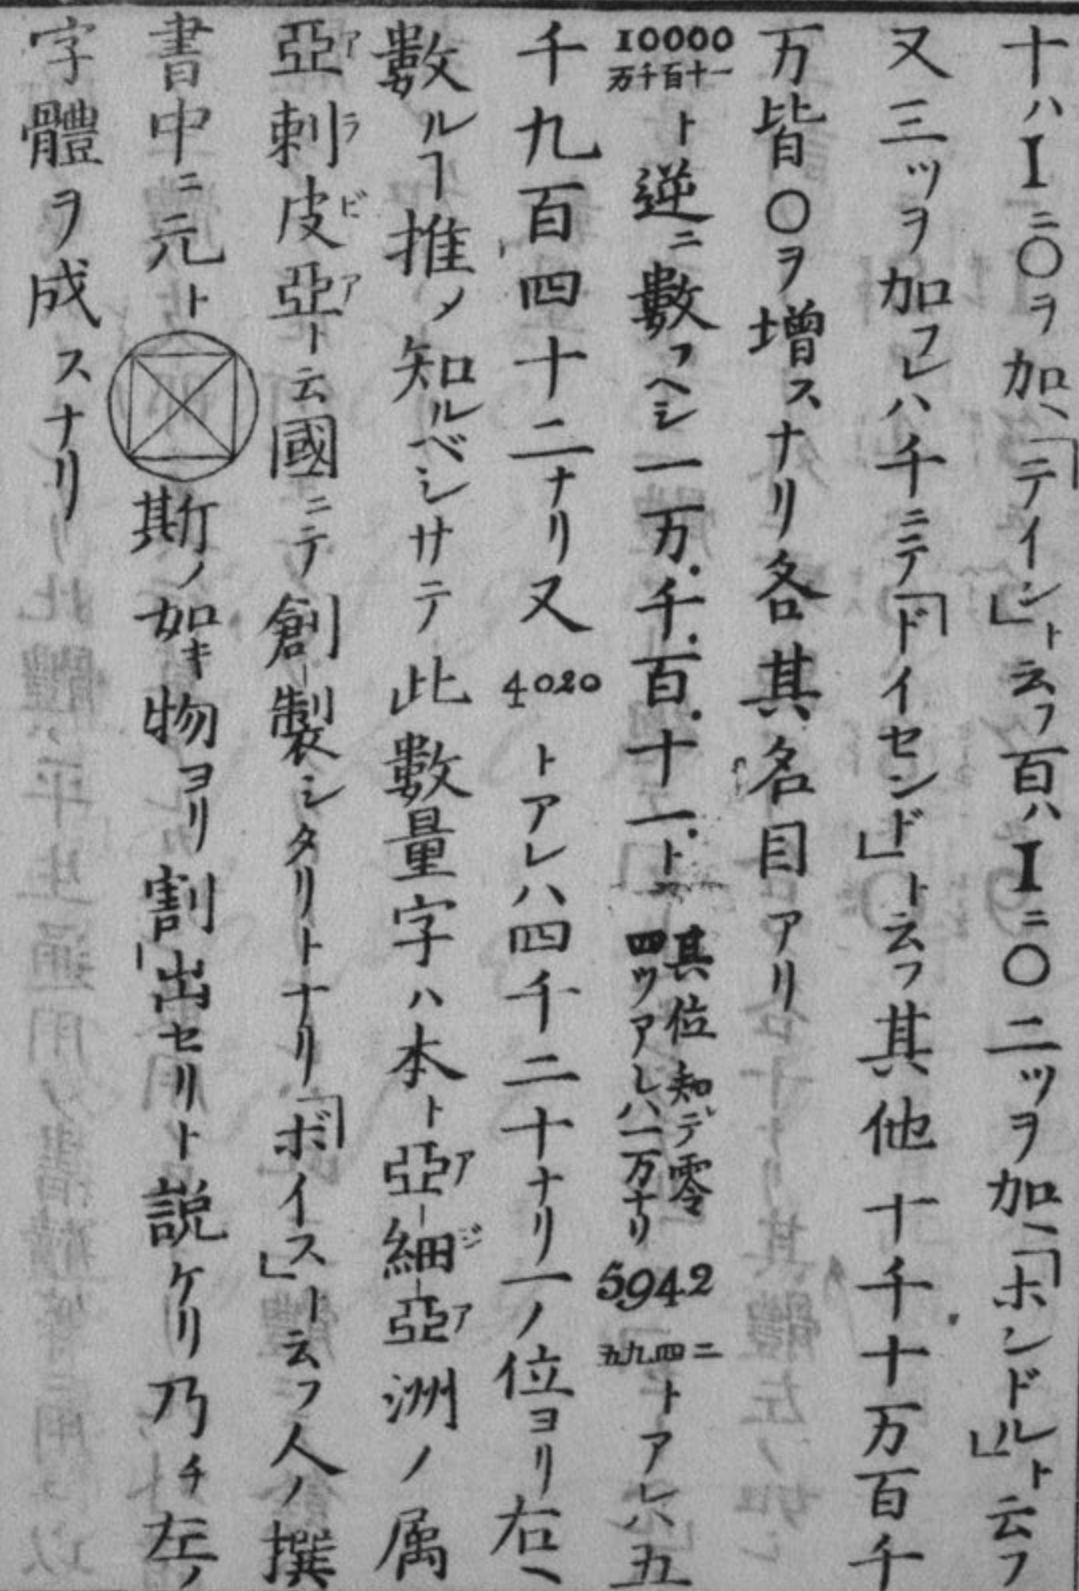 十ハIニ〇ヲ加ヘ「テイン」ト云フ百ハIニ〇二ツヲ加ヘ「ホンドル」ト云フ
又三ツヲ加フレハ千ニテ「ドイセンド」ト云フ其他十千十万百千
万皆〇ヲ増スナリ各其名目アリ
10000
万千百十一
ト逆ニ数フヘシ一万千百十一ト
其位知デ零
四ツアレハ一万ナリ
5942
五九四二
トアレハ五
千九百四十二ナリ又4020トアレハ四千二十ナリ一ノ位ヨリ右ヘ
數ルヿ推ノ知ルベシサテ此數量字ハ本ト亞細亞洲ノ属
亞剌皮亞ト云國ニテ創製シタリトナリ「ボイス」ト云フ人ノ撰
書中ニ元ト斯ノ如キ物ヨリ割出セリト説ケリ乃チ左ノ
字體ヲ成スナリ